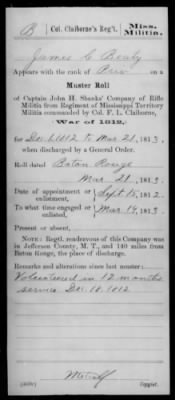 B Col. Claiborne's Reg't. Miss. Militia.
James C Beaty
Appears with the rank of Priv on a
Muster Roll
of Captain John H. Shanks' Company of Rifle
Militia from Regiment of Mississippi Territory
Militia commanded by Col. F. L. Claiborne,
War of 1812,
for Dec 1, 1812 to Mar 21, 1813,
when discharged by a General Order.
Roll dated Baton Rouge
Mar 21, 1813.
Date of appointment or enlistment, Sept 15, 1812.
To what time engaged or enlisted, Mar 14, 1813.
Present or absent,
NOTE: Regtl. rendezvous of this Company was
in Jefferson County, M. T., and 140 miles from
Baton Rouge, the place of discharge.
Remarks and alterations since last muster:
Volunteered in 12 months
service Dec. 18, 1812
Metcalf
Copyist.